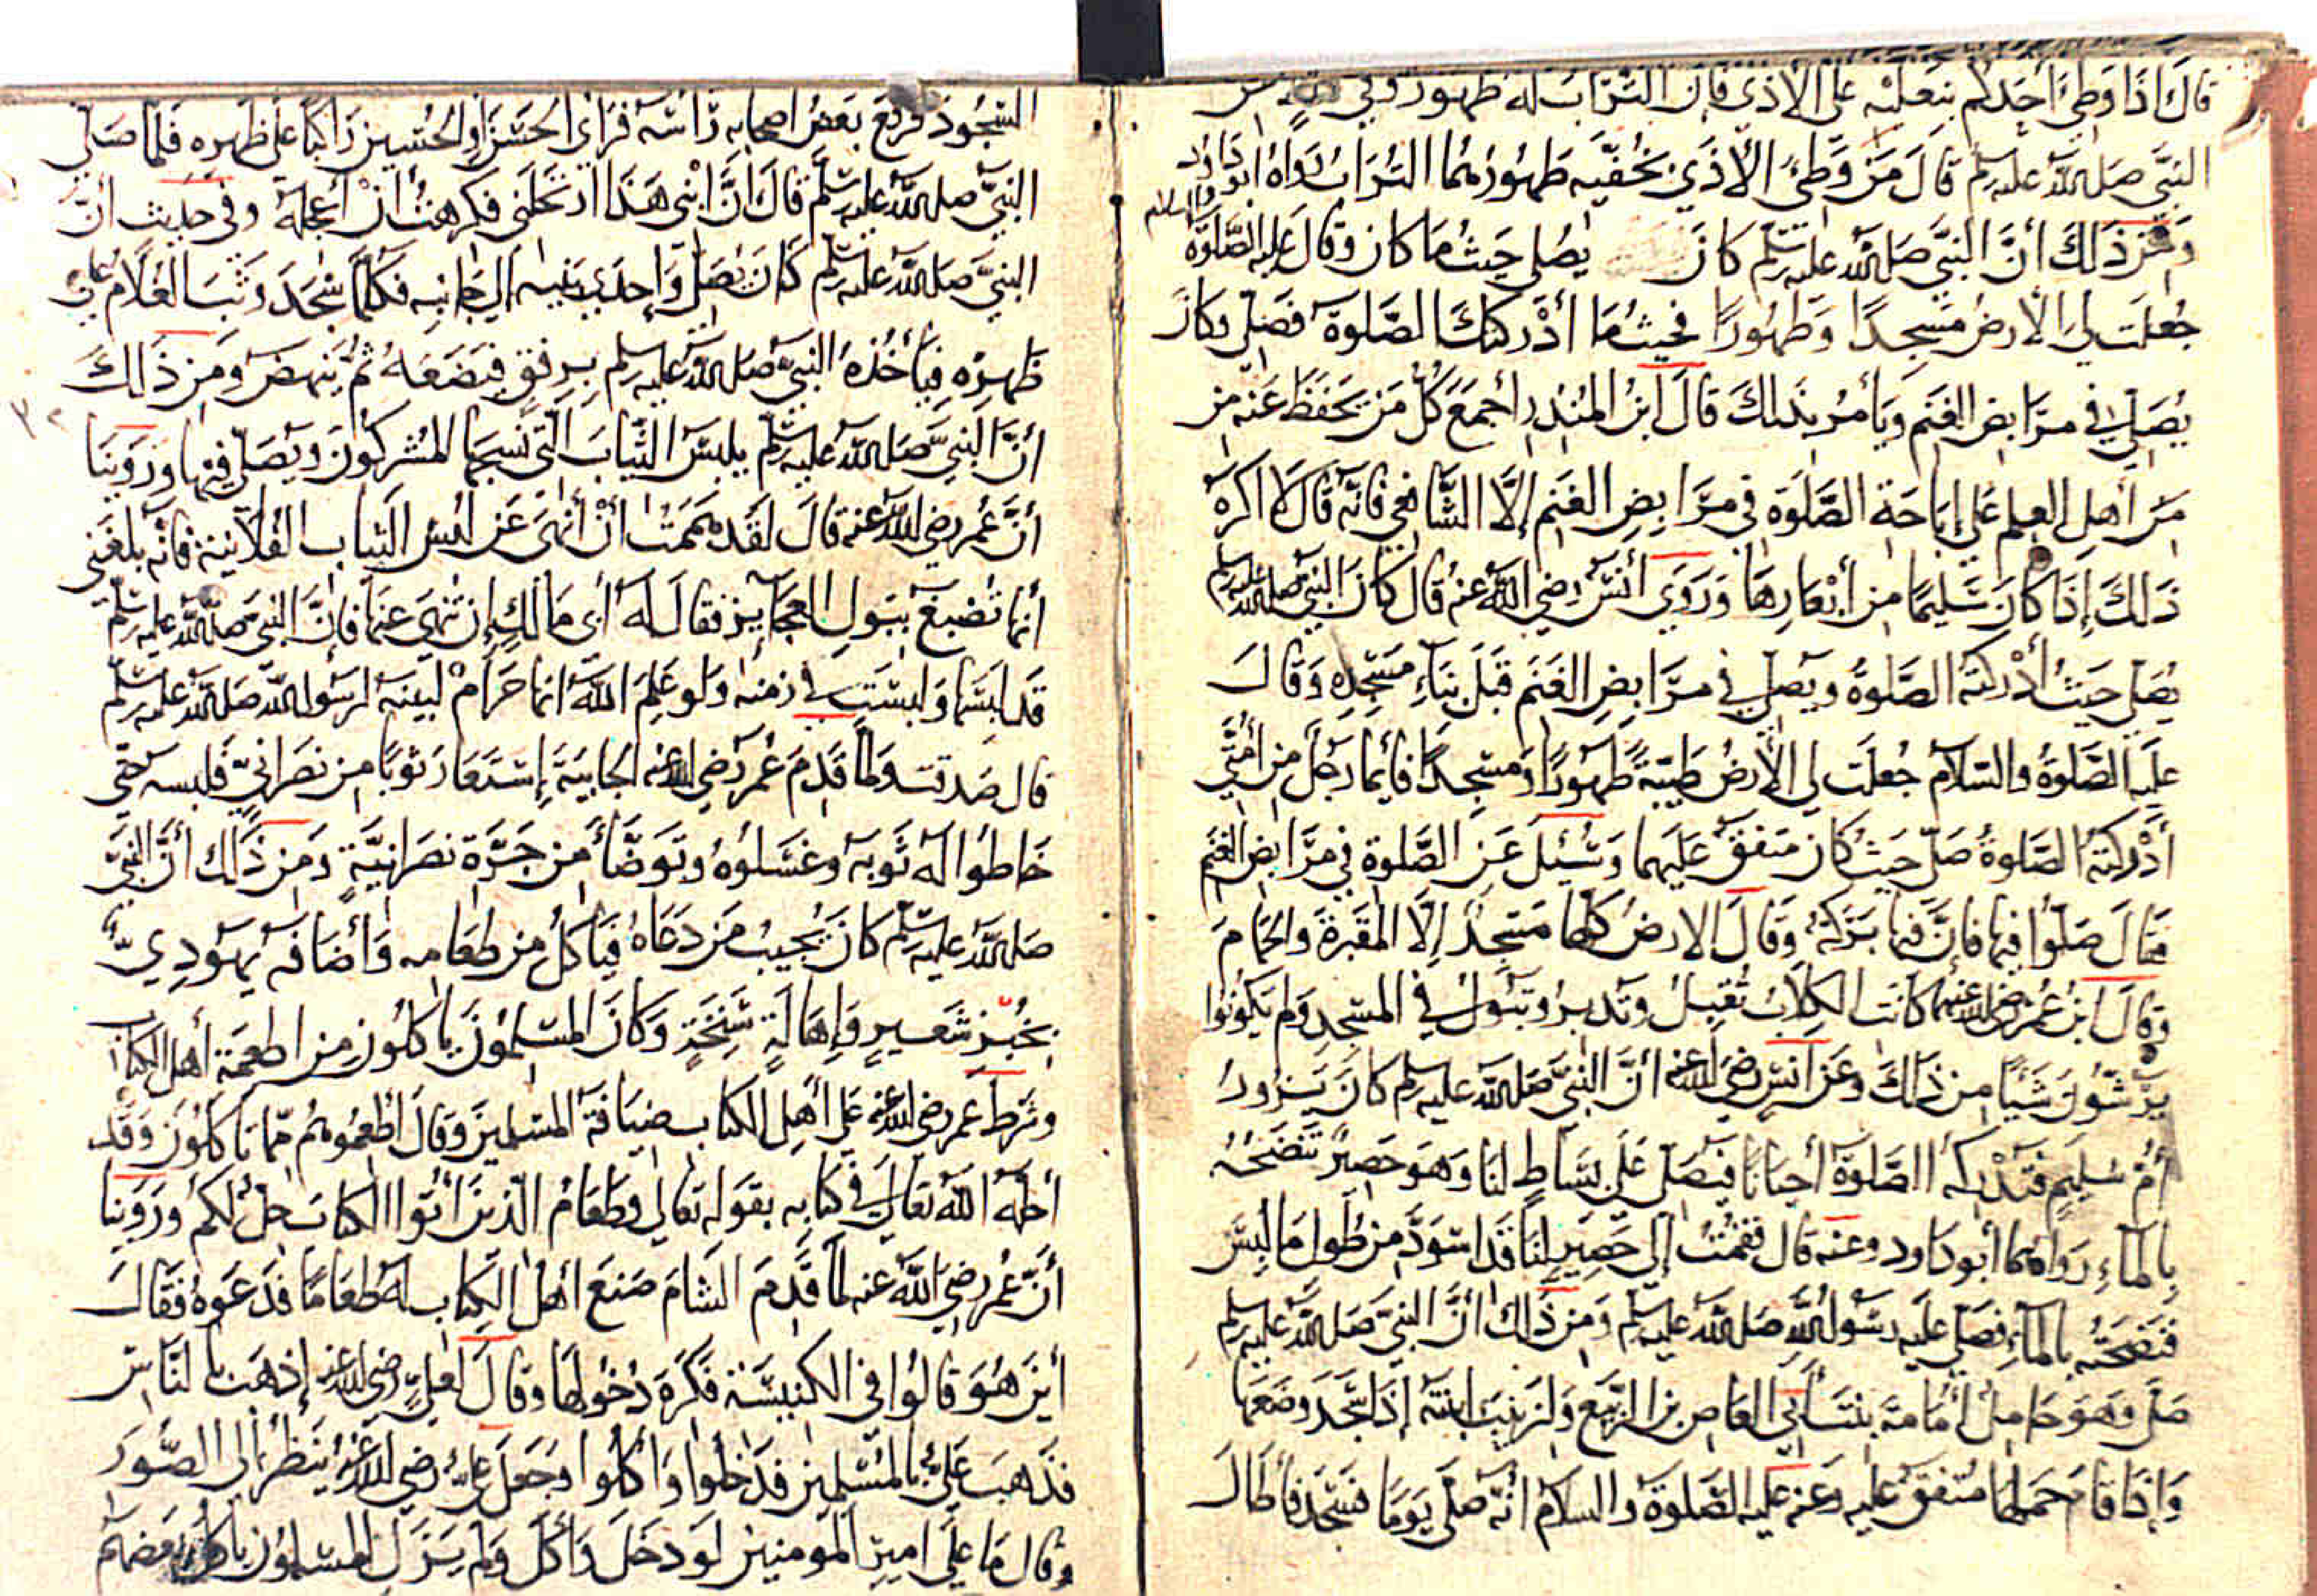 قال اذا وطئ احدكم بنعليه على الاذى فان التراب له طهور وفي
النبي صلى الله عليه وسلم قال من وطئ الأذى بخفيه طهورهما التراب رواه ابو داود
ومن ذلك أن النبي صلى الله عليه وسلم كان يصلي حيث ما كان وقال عليه الصلوة والسلام
جعلت لي الارض مسجدا وطهورا فحيث ما أدركتك الصلوة فصلي وكان
يصلي في مرابض الغنم ويأمر بذلك قال ابن المنذر أجمع كل من يحفظ عنه من
من أهل العلم على إباحة الصلوة في مرابض الغنم إلا الشافعي فانه قال لا اكره
ذلك إذا كان سليما من أبعارها وروى أنس رضي الله عنه قال كان النبي صلى الله عليه وسلم
يصلي حيث أدركته الصلوة ويصلي في مرابض الغنم قبل بناء مسجده وقال
عليه الصلوة والسلام جعلت لي الأرض طيبة طهورا ومسجدا فأيما رجل من أمتي
أدركته الصلوة صلى حيث كان متفق عليهما وسئل عن الصلوة في مرابض الغنم
فقال صلوا فيها فان فيها بركة وقال الارض كلها مسجد إلا المقبرة والحمام
وقال ابن عمر رضي الله عنهما كانت الكلاب تقبل وتدبر وتبول في المسجد ولم يكونوا
يرشون شيئا من ذلك وعن انس رضي الله عنه أن النبي صلى الله عليه وسلم كان يزور
أم سليم فتدركه الصلوة أحيانا فيصلي على بساط لنا وهو حصير تنضحه
بالماء رواهما أبو داود وعنه قال فقمت إلى حصير لنا قد اسود من طول ما لبس
فنضحته بالماء فصلى عليه رسول الله صلى الله عليه وسلم ومن ذلك ان النبي صلى الله عليه وسلم
صلى وهو حامل أمامة بنت أبي العاص بن الربيع ولزينب ابنته إذا سجد وضعها
وإذا قام حملها متفق عليه وعنه عليه الصلوة والسلام انه صلى يوما فسجد فأطال
السجود فرفع بعض اصحابه رأسه فرأى الحسن او الحسين راكبا على ظهره فلما صلى
النبي صلى الله عليه وسلم قال ان ابني هذا ارتحلني فكرهت أن أعجله وفي حديث أن
النبي صلى الله عليه وسلم كان يصلي وإحدى بنيه الى جانبه فكلما سجد وثب الغلام على
ظهره فيأخذه النبي صلى الله عليه وسلم برفق فيضعه ثم ينهض ومن ذلك
أن النبي صلى الله عليه وسلم يلبس الثياب التي نسجها المشركون ويصلي فيها وروينا
أن عمر رضي الله عنه قال لقد هممت أن أنهى عن لبس الثياب الفلانية فانه بلغني
أنها تصبغ ببول العجايز فقال له أبى مالك إن تنهى عنها فان النبي صلى الله عليه وسلم
قد لبسها ولبست في زمنه ولو علم الله انها حرام لبينه لرسول الله صلى الله عليه وسلم
قال صدقت ولما قدم عمر رضي الله عنه الجابية إستعار ثوبا من نصراني فلبسه حتى
خاطوا له ثوبه وغسلوه وتوضأ من جرة نصرانية ومن ذلك أن النبي
صلى الله عليه وسلم كان يجيب من دعاه فيأكل من طعامه وأضافه يهودي
بخبز شعير وإهالة سنخة وكان المسلمون يأكلون من اطعمة أهل الكتاب
وشرط عمر رضي الله عنه على أهل الكتاب ضيافة المسلمين وقال أطعموهم مما تأكلون وقد
أحله الله تعالى في كتابه بقوله تعالى وطعام الذين أوتوا الكتاب حل لكم وروينا
أن عمر رضي الله عنه لما قدم الشام صنع أهل الكتاب له طعاما فدعوه فقال
أين هو قالوا في الكنيسة فكره دخولها وقال لعلي رضي الله عنه إذهب بالناس
فذهب علي بالمسلمين فدخلوا وأكلوا وجعل علي رضي الله عنه ينظر الى الصور
وقال ما على امير المومنين لو دخل وأكل ولم يزل المسلمون يأكل بعضهم